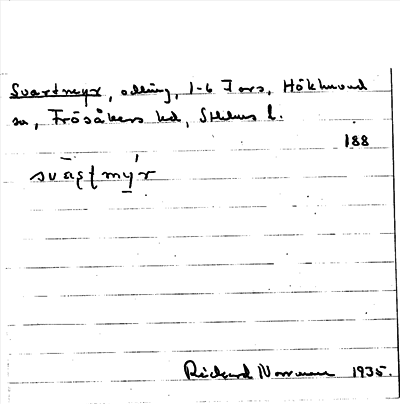 Svartmyr, odling, 1-6 Fors, Hökhuvud
sn, Frösåkers hd, Sthlms l.
188
Rickard Norrman 1935.